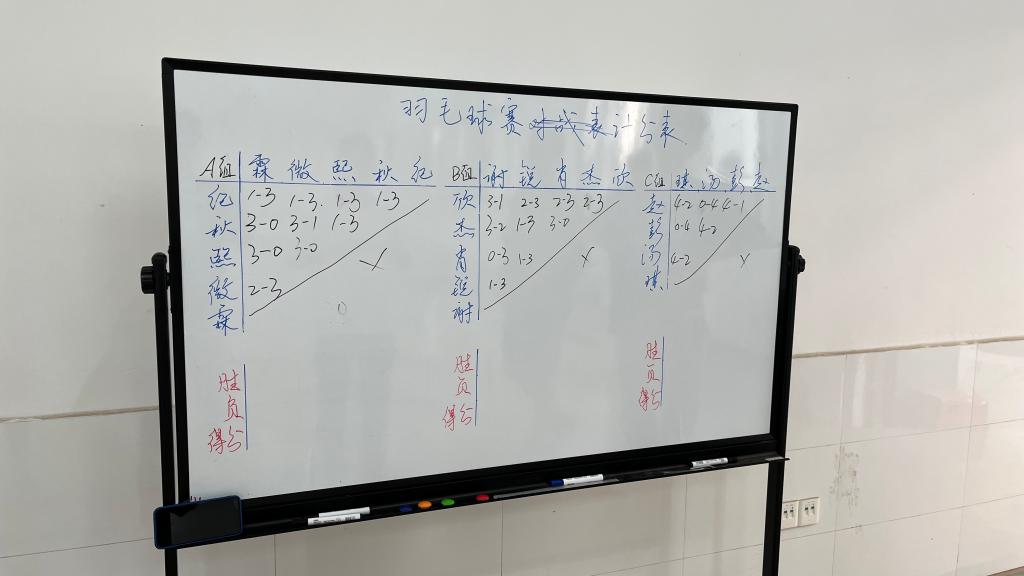 羽毛球赛对战表计分表
A组 霖 微 熙 秋 纪
纪 1-3 1-3 1-3 1-3
秋 3-0 3-1 1-3
熙 3-0 3-0
微 2-3
霖
胜
负
得分
B组 谢 锐 肖 杰 欣
欣 3-1 2-3 2-3 2-3
杰 3-2 1-3 3-0
肖 0-3 1-3
锐 1-3
谢
胜
负
得分
C组 琪 汤 彭 赵
赵 4-2 0-4 4-1
彭 0-4 4-2
汤 4-2
琪
胜
负
得分